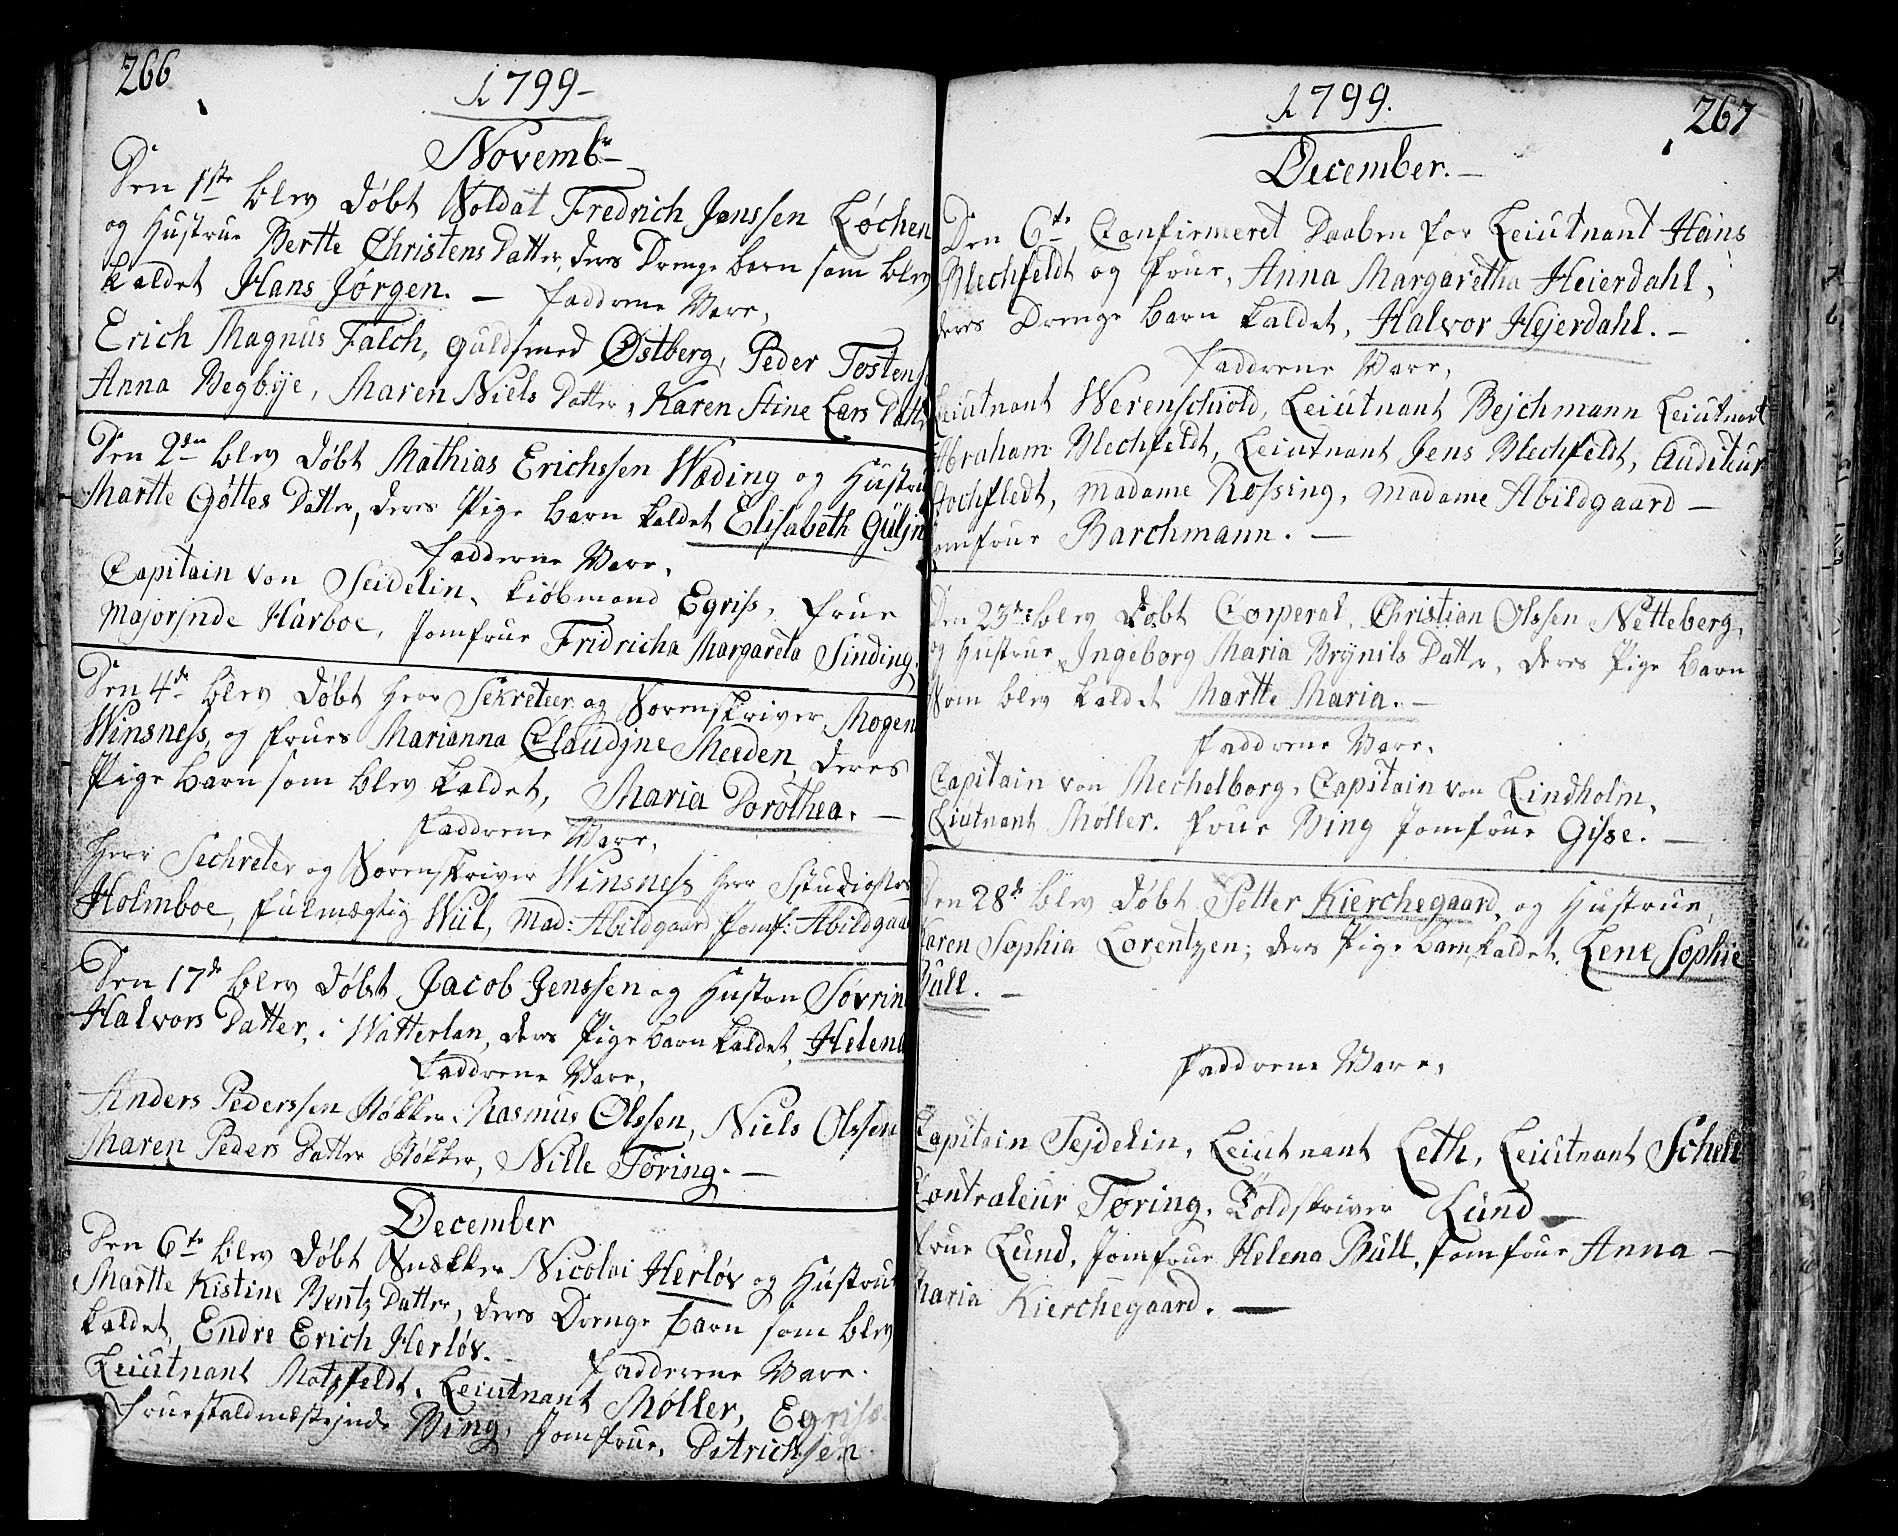 266
1799
Novembr
Den 1ste blev Døbt Soldat Fredrich Jenssen Løchen
og Hustrue Bertte Christens Datter, deres Drenge barn som blev
kaldet Hans Jørgen. — Faddrene Vare,
Erich Magnus Falch, guldsmed Østberg, Peder Tostens
Anna Begbÿe, Maren Niels Datter, Karen Stine Lars Datt
Den 2den blev Døbt Mathias Erichssen Wæding og Hustru
Martte Gøttes Datter, deres Pige barn kaldet Elisabeth Güljn
Faddrene Vare,
Capitain von Seidelin, kiøbmand Egriss, frue
Majorjnde Harboe, Jomfrue Fridricha Margareta Sinding.
Den 4de blev Døbt Herr Sekreteer og Sorenskriver Mogen
Winsness, og frues Marianna Claudjne Meeden, deres
Pige barn som blev kaldet, Maria Dorothea. —
Faddrene Vare,
Herr Sechreter og Sorenskriver Winsness Herr Studiosus
Holmboe, fulmægtig Wiil, Mad: Abildgaard Jomf: Abildgaa
Den 17de blev Døbt Jacob Jenssen og Hustrue Søvrin
Halvors Datter, i Watterlan, deres Pige barn kaldet, Helena
Faddrene Vare,
Anders Pederssen Høkker, Rasmus Olssen, Niels Olssen
Maren Peders Datter Høkker, Nille Toring. —
December
Den 6te blev Døbt Snekker Nicolai Herløv og Hustrue
Martte Kistine Bentz Datter, deres Drenge barn som blev
kaldet, Endre Erich Herløv. — Fadderene Vare.
Leiutnant Motzfeldt, Leiutnant Møller, Egriss.
frue staldmæsterjnde Bing, Jomfrue, Ditrichsen.
1799.
267
December. —
Den 6te Confirmeret Daaben for Leiutnant Hans
Blechfeldt og frue, Anna Margaretha Heierdahl,
deres Drenge barn kaldet, Halvor Hejerdahl. —
Faddrene Vare,
Leiutnant Werenschiold, Leiutnant Bejchmann Leiutnant
Abraham Blechfeldt, Leiutnant Jens Blechfeldt, Auditeur
Stochfledt, Madame Rossing, Madame Abildgaard —
Jomfrue Barchmann. —
Den 23de blev Døbt Corperal, Christian Olssen Netteberg,
og Hustrue Ingeborg Maria Brÿnils Datter, deres Pige barn
som blev kaldet Martte Maria. —
Faddrene Vare,
Capitain von Mechelborg, Capitain von Lindholm,
Liutnant Møller. frue Bing Jomfrue Gisse. —
Den 28de blev Døbt Petter Kierchegaard, og Hustrue,
Karen Sophia Lorentzen; deres Pige barn kaldet, Lene Sophie
Bull. —
Faddrene Vare,
Capitain Sejdelin, Leiutnant Leth, Leiutnant Schell
Contraleur Toring, Toldskriver Lund —
frue Lund, Jomfrue Helena Bull, Jomfrue Anna —
Maria Kierchegaard. —